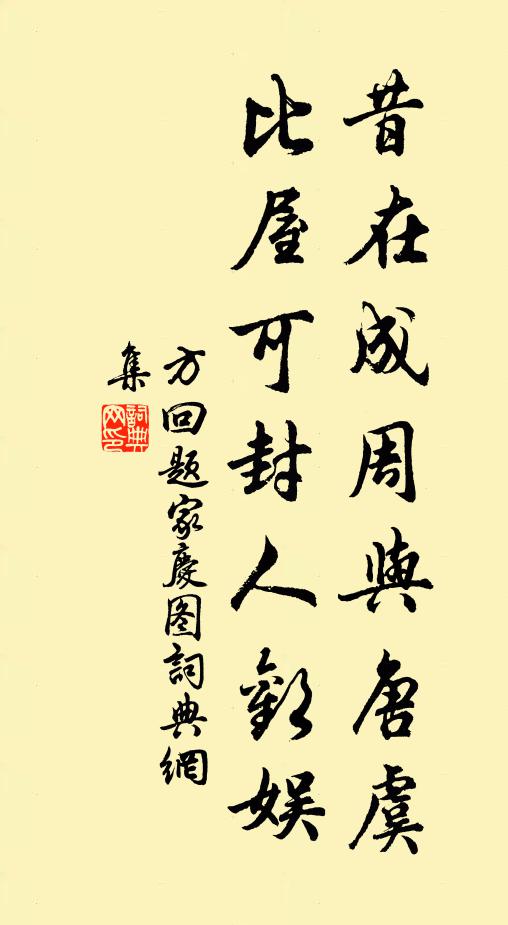 昔在成周與唐虞
比屋可封人歡娛
方回題家慶圖詞典網
集
詞典網印